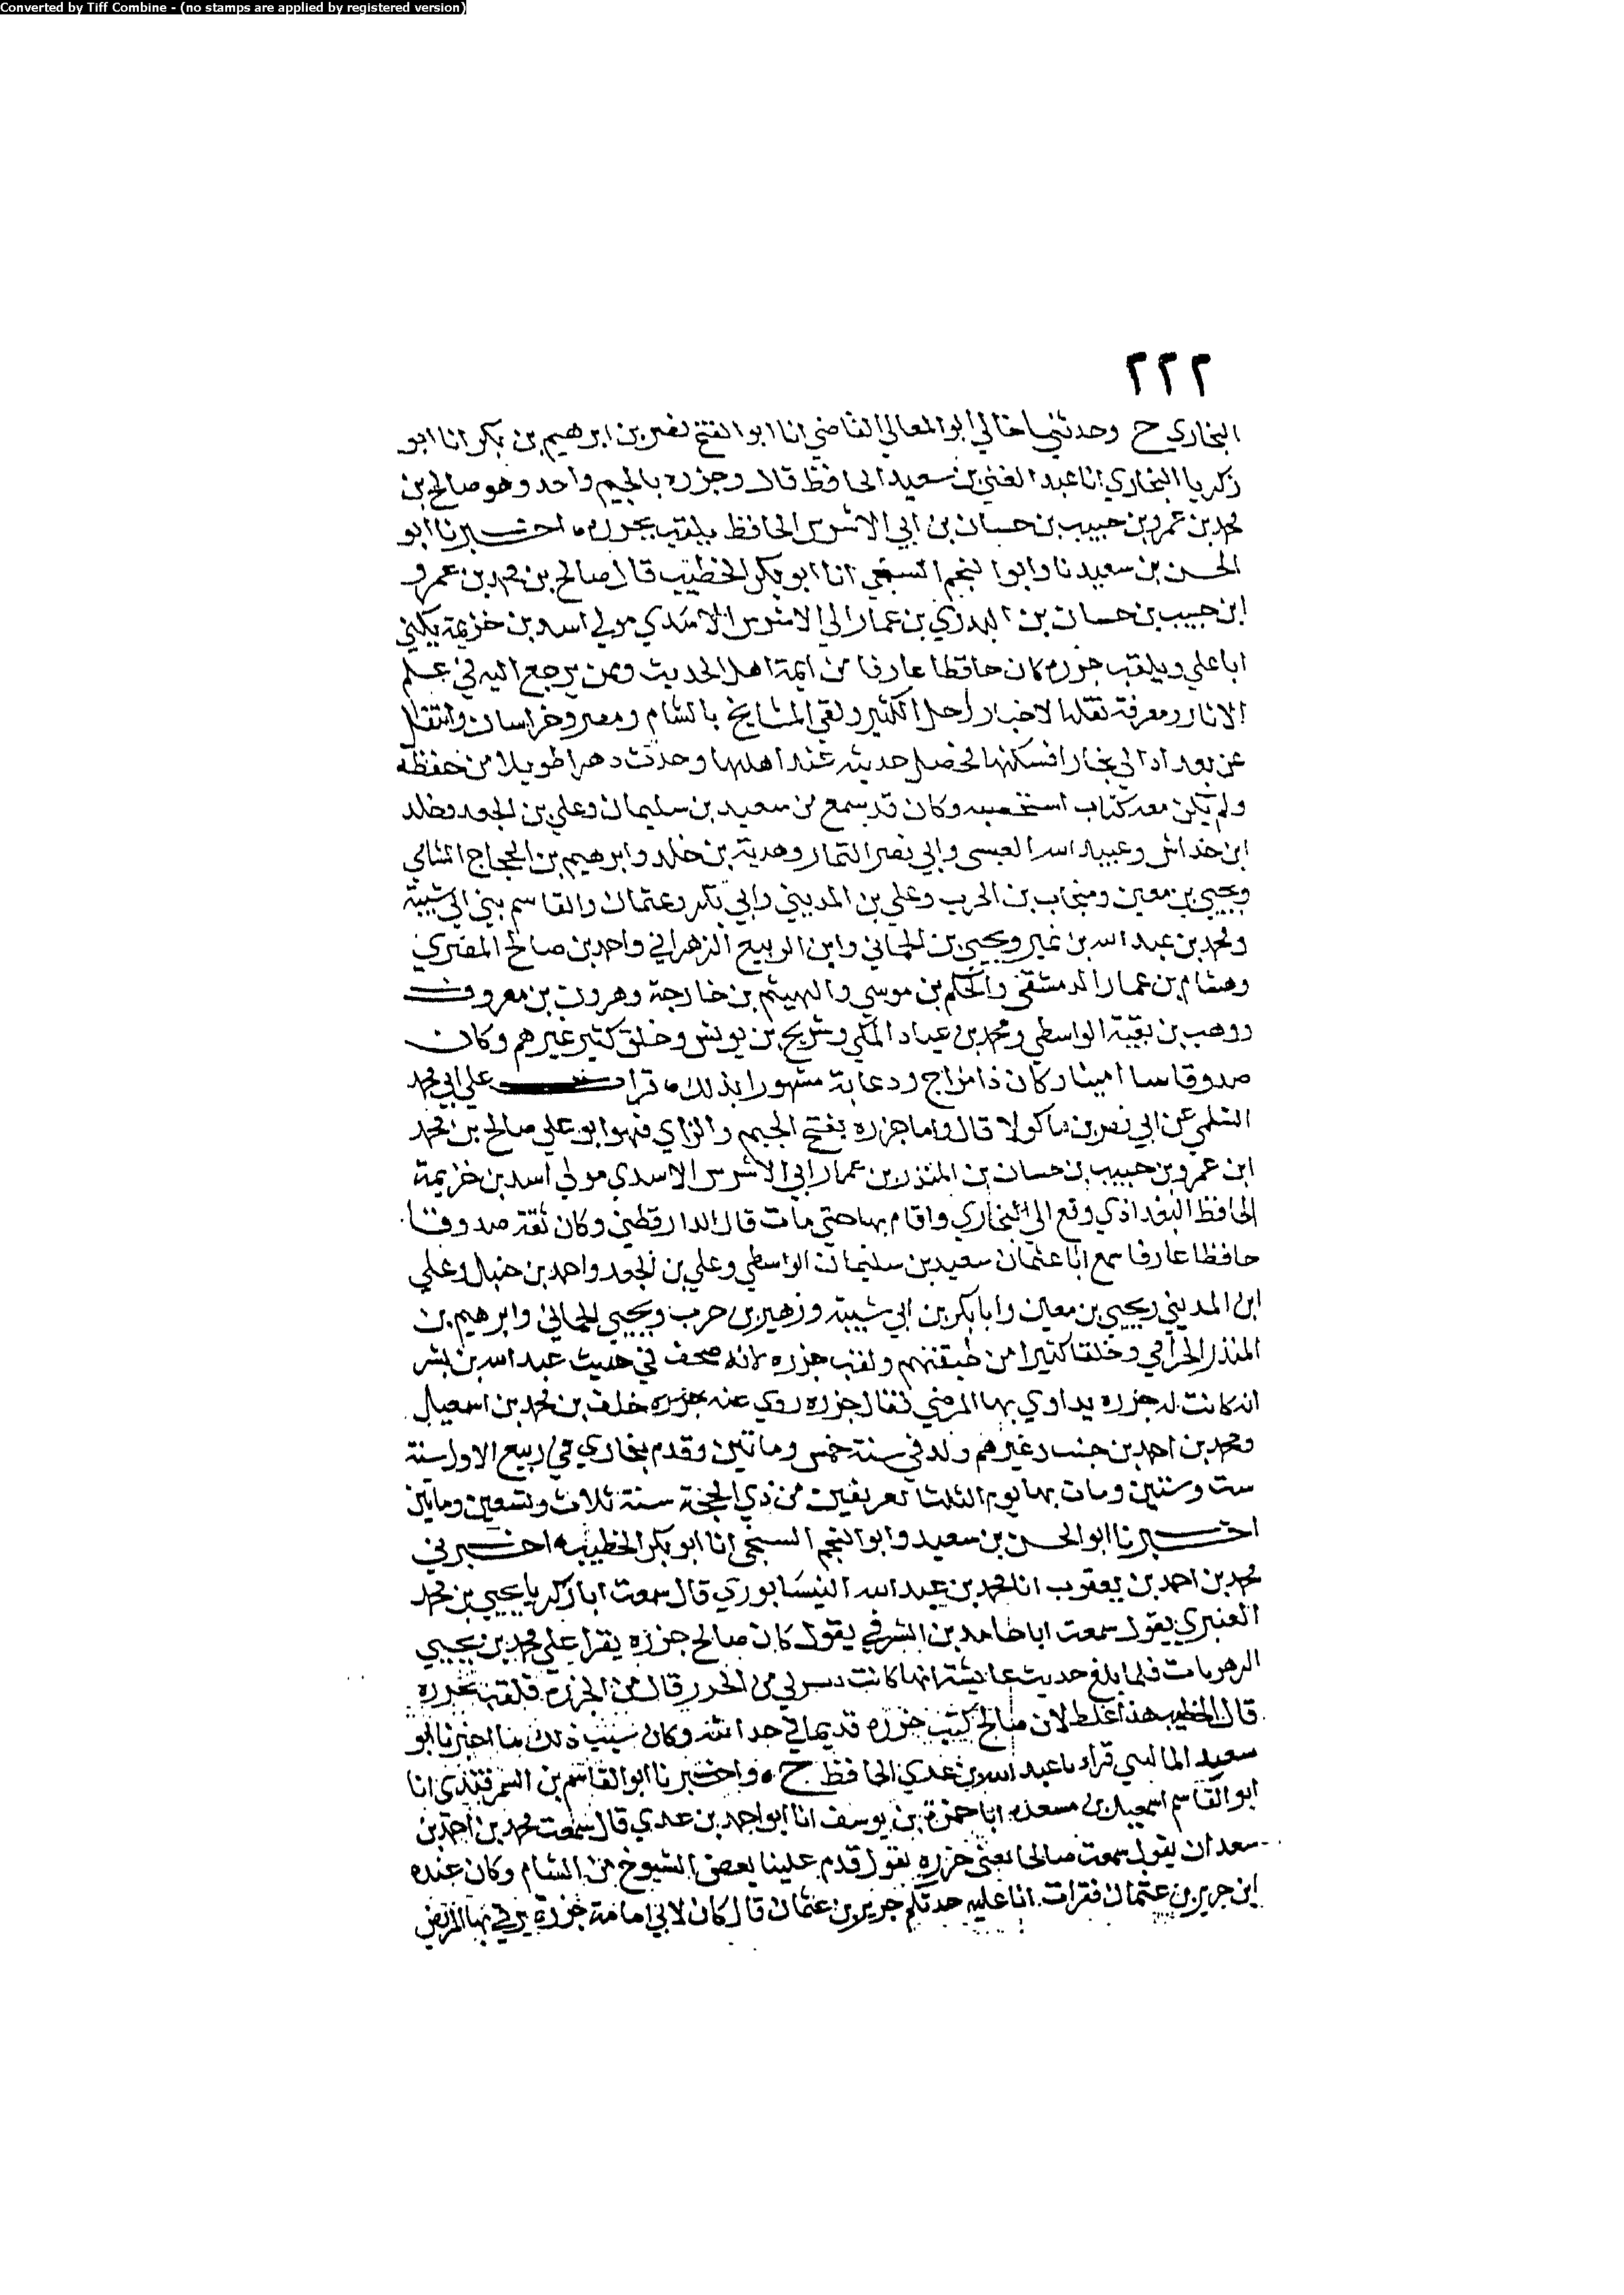 Converted by Tiff Combine - (no stamps are applied by registered version)
٢٢٢
البخاري ح وحدثني خالي أبو المعالي القاضي انا ابو الفتح نصر بن ابرهيم بن بكر انا ابو
زكريا البخاري انا عبد الغني بن سعيد الحافظ قال وجزره بالجيم واحد وهو صالح بن
محمد بن عمرو بن حبيب بن حسان بن ابي الاشرس الحافظ يلقب بجزره اخبرنا ابو
الحسن بن سعيد نا وابو النجم السبخي انا ابو بكر الخطيب قال صالح بن محمد بن عمرو
ابن حبيب بن حسان بن المنذر بن عمار ابي الاشرس الاسدي مولي اسد بن خزيمة يكني
ابا علي ويلقب جزره كان حافظا عارفا من ايمة اهل الحديث وممن يرجع اليه في علم
الاثار ومعرفة نقلة الاخبار رحل الكثير ولقي المشايخ بالشام ومصر وخراسان وانتقل
عن بغداد الي بخارا فسكنها فحصل حديثه عند اهلها وحدث دهرا طويلا من حفظه
ولم يكن معه كتاب استصحبه وكان قد سمع من سعيد بن سليمان وعلي بن الجعد وخلد
ابن خداش وعبيد الله العيسى وابي نصر التمار وهدبة بن خلد وابرهيم بن الحجاج الشامي
ويحيي بن معين ومنجاب بن الحرب وعلي بن المديني وابي بكر وعثمان والقاسم بني ابي شيبة
ومحمد بن عبد الله بن نمير ويحيي بن الحماني وابن الربيع الزهراني واحمد بن صالح المصري
وهشام بن عمار الدمشقي والحكم بن موسي والهيثم بن خارجة وهرون بن معروف
ووهب بن بقية الواسطي ومحمد بن عباد المكي وشريح بن يونس وخلق كثير غيرهم وكان
صدوقا سا امينا وكان ذا مزاح ودعابة مشهورا بذلك قرات علي ابي محمد
السلمي عن ابي نصر بن ماكولا قال واما جزره بفتح الجيم والزاي فهو ابو علي صالح بن محمد
ابن عمرو بن حبيب بن حسان بن المنذر بن عمار ابي الاشرس الاسدي مولي اسد بن خزيمة
الحافظ البغداذي وقع الي البخاري واقام بها حتي مات قال الدارقطني وكان ثقة صدوقا
حافظا عارفا سمع ابا عثمان سعيد بن سليمان الواسطي وعلي بن الجعد واحمد بن حنبل وعلي
ابن المديني ويحيي بن معين وابا بكر بن ابي شيبة وزهير بن حرب ويحيي الحماني وابرهيم بن
المنذر الحزامي وخلقا كثيرا من طبقتهم ولقب جزره لانه صحف في حديث عبد الله بن بشر
انه كانت له جزره يداوي بها المرضي فقال جزره روي عنه خلف بن محمد بن اسمعيل
ومحمد بن احمد بن جنب وغيرهم ولد في سنة خمس وماتين وقدم بخاري في ربيع الاول سنة
ست وستين ومات بها يوم الثلثا من ذي الحجة سنة ثلاث وتسعين وماتين
اخبرنا ابو الحسن بن سعيد وابو النجم السبخي انا ابو بكر الخطيب اخبرني
محمد بن احمد بن يعقوب انا محمد بن عبد الله النيسابوري قال سمعت ابا زكريا يحيي بن محمد
العنبري يقول سمعت ابا حامد بن الشرقي يقول كان صالح جزره يقرا علي محمد بن يحيي
الزهريات فلما بلغ حديث عايشة انها كانت تسترقي من الخرز قال من الجزره فلقب بجزره
قال الخطيب هذا غلط لان صالح كتب جزره قديما في حداثته وكان سبب ذلك ما اخبرنا ابو
سعيد الماليني قراه نا عبد الله بن عدي الحافظ ح واخبرنا ابو القاسم بن السمرقندي انا
ابو القاسم اسمعيل بن مسعده انا حمزة بن يوسف انا ابو احمد بن عدي قال سمعت محمد بن احمد بن
سعدان يقول سمعت صالحا يعني جزره يقول قدم علينا بعض الشيوخ من الشام وكان عنده
ابن جرير بن عثمان فقرات انا عليه حدثكم جرير بن عثمان قال كان لابي امامة خرزة يرقي بها المريض